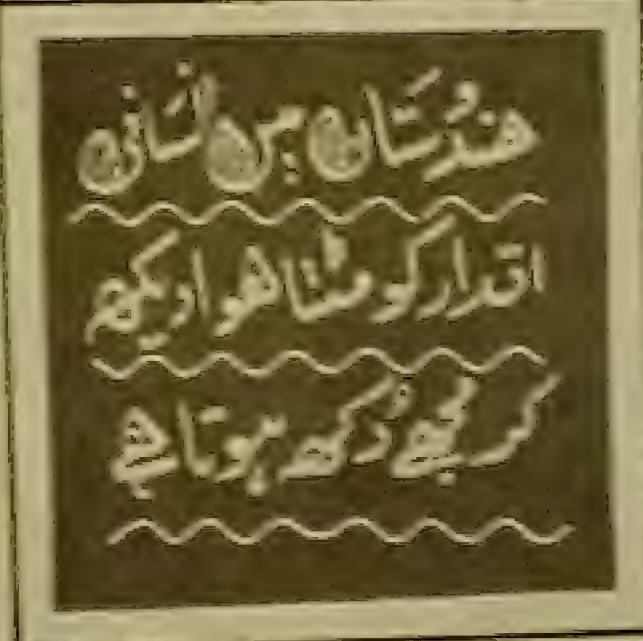 ھندُستَان میں انسَانی
اقدار کو مٹتا ھوا دیکھ
کر مجھے دُکھ ہوتا ھے